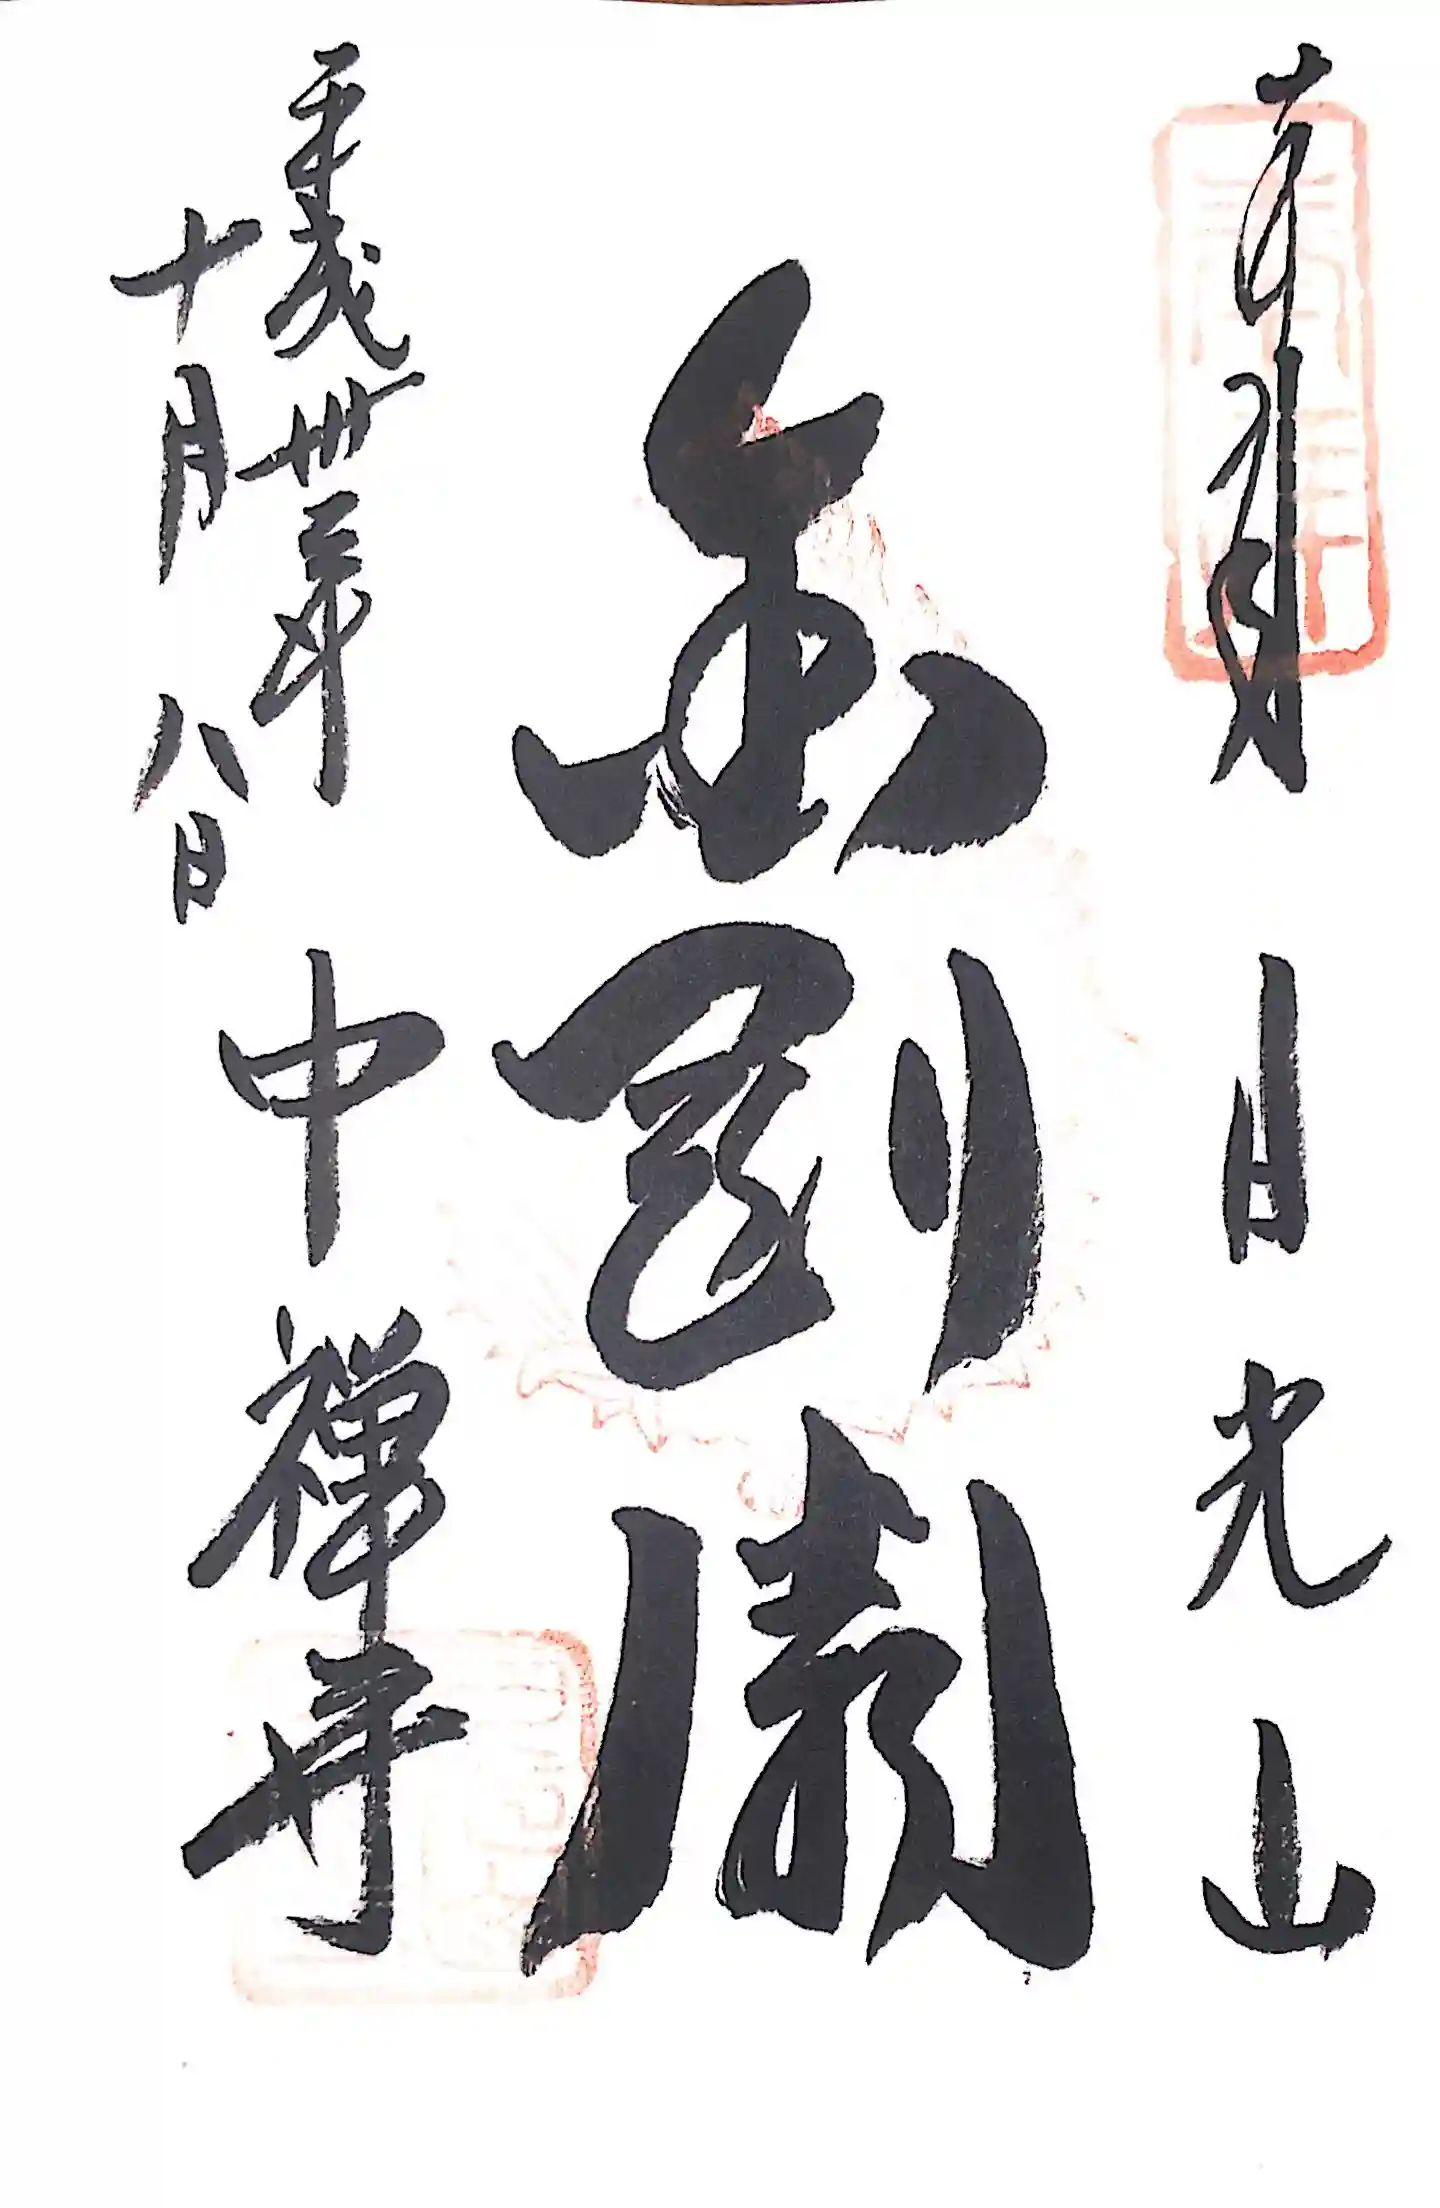 奉拝　日光山
金剛
平成卅年
十月八日
中禅寺